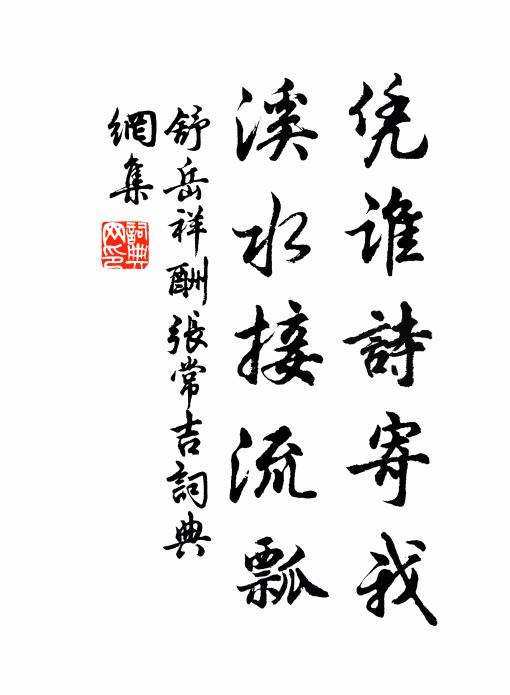 凭谁詩寄我
溪水接流瓢
舒岳祥酬張常吉詞典
網集
詞典
网印